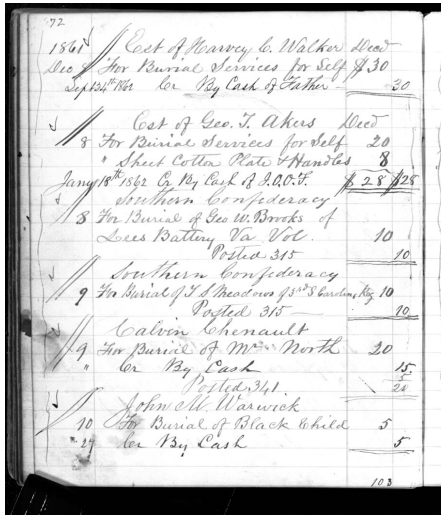 72
1861 Est of Harvey C. Walker Decd
Dec 8 For Burial Services for Self $ 30
Sept 24th 1862 Cr By Cash of Father 30
Est of Geo. T. Akers Decd
8 For Burial Services for Self 20
" Sheet Cotton Plate & Handles 8
Jany 18th 1862 Cr By Cash of I.O.O.F. $ 28 $28
Southern Confederacy
8 For Burial of Geo W. Brooks of
Lees Battery Va Vol. 10
Posted 315 10
Southern Confederacy
9 For Burial of T S Meadows of 3rd S Carolina Reg 10
Posted 315 10
Calvin Chenault
9 For Burial of Mrs North 20
" Cr By Cash 15
5
Posted 341 20
John M. Warwick
10 For Burial of Black Child 5
" 27 Cr By Cash 5
103